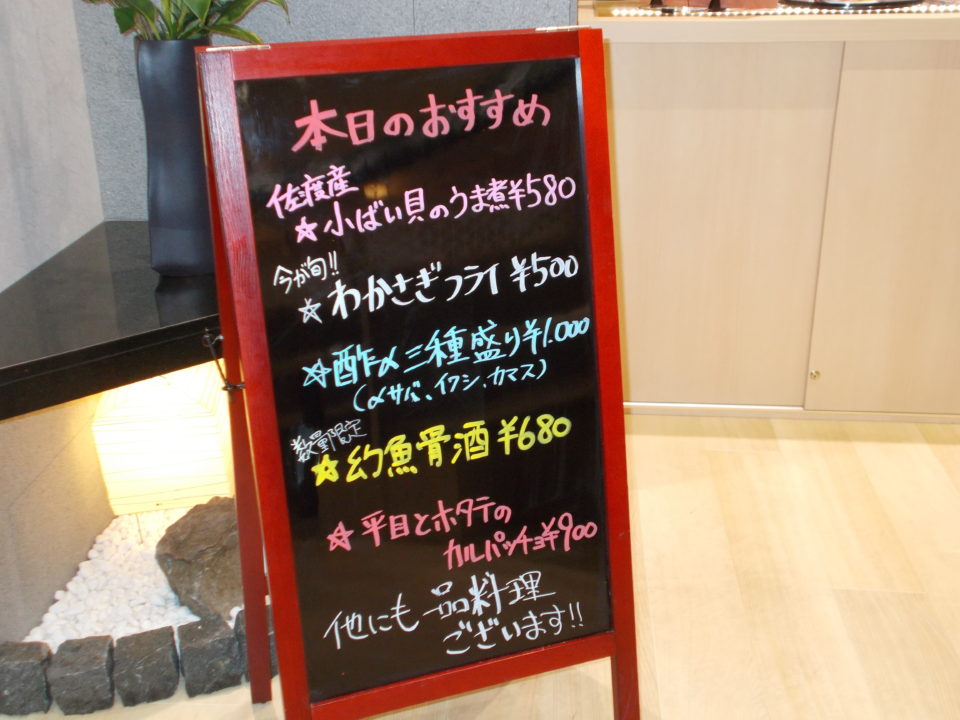 本日のおすすめ
佐渡産
☆小ばい貝のうま煮¥580
今が旬!!
☆わかさぎフライ ¥500
☆酢〆三種盛り¥1.000
(〆サバ、イワシ、カマス)
数量限定
☆幻魚骨酒 ¥680
☆平目とホタテの
カルパッチョ¥900
他にも一品料理
ございます!!